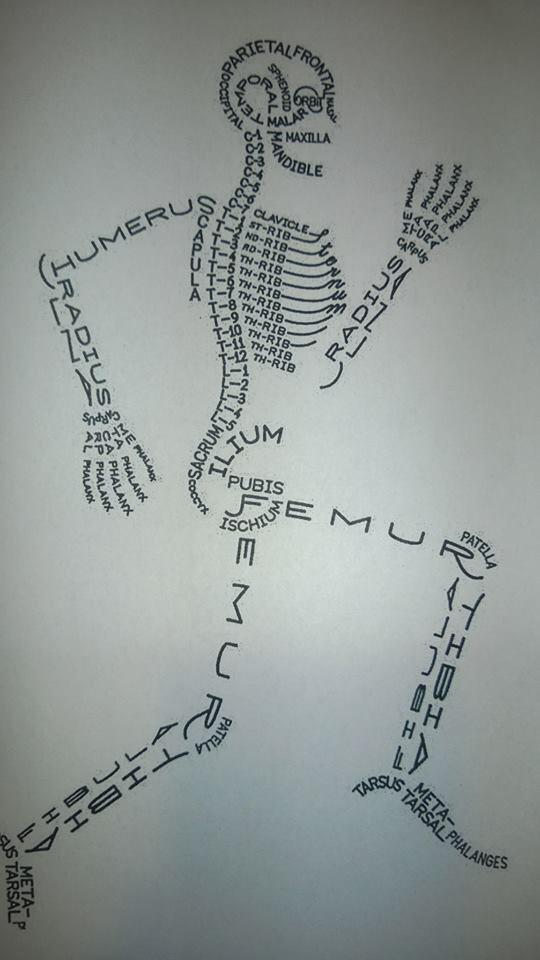 PARIETAL
FRONTAL
NASAL
OCCIPITAL
TEMPORAL
SPHENOID
ORBIT
MALAR
MAXILLA
MANDIBLE
C-1
C-2
C-3
CLAVICLE
ST-RIB
ND-RIB
RD-RIB
TH-RIB
TH-RIB
TH-RIB
TH-RIB
TH-RIB
TH-RIB
TH-RIB
TH-RIB
TH-RIB
sternum
SCAPULA
HUMERUS
RADIUS
ULNA
CARPUS
METACARPAL
PHALANX
PHALANX
PHALANX
PHALANX
PHALANX
RADIUS
ULNA
CARPUS
METACARPAL
PHALANX
PHALANX
PHALANX
PHALANX
PHALANX
T-5
T-6
T-7
T-8
T-9
T-10
T-11
T-12
L-1
L-2
L-3
L-4
L-5
SACRUM
COCCYX
ILIUM
PUBIS
ISCHIUM
FEMUR
PATELLA
TIBIA
FIBULA
TARSUS
META-
TARSAL
PHALANGES
FEMUR
PATELLA
TIBIA
FIBULA
SUS
META-
TARSAL
P